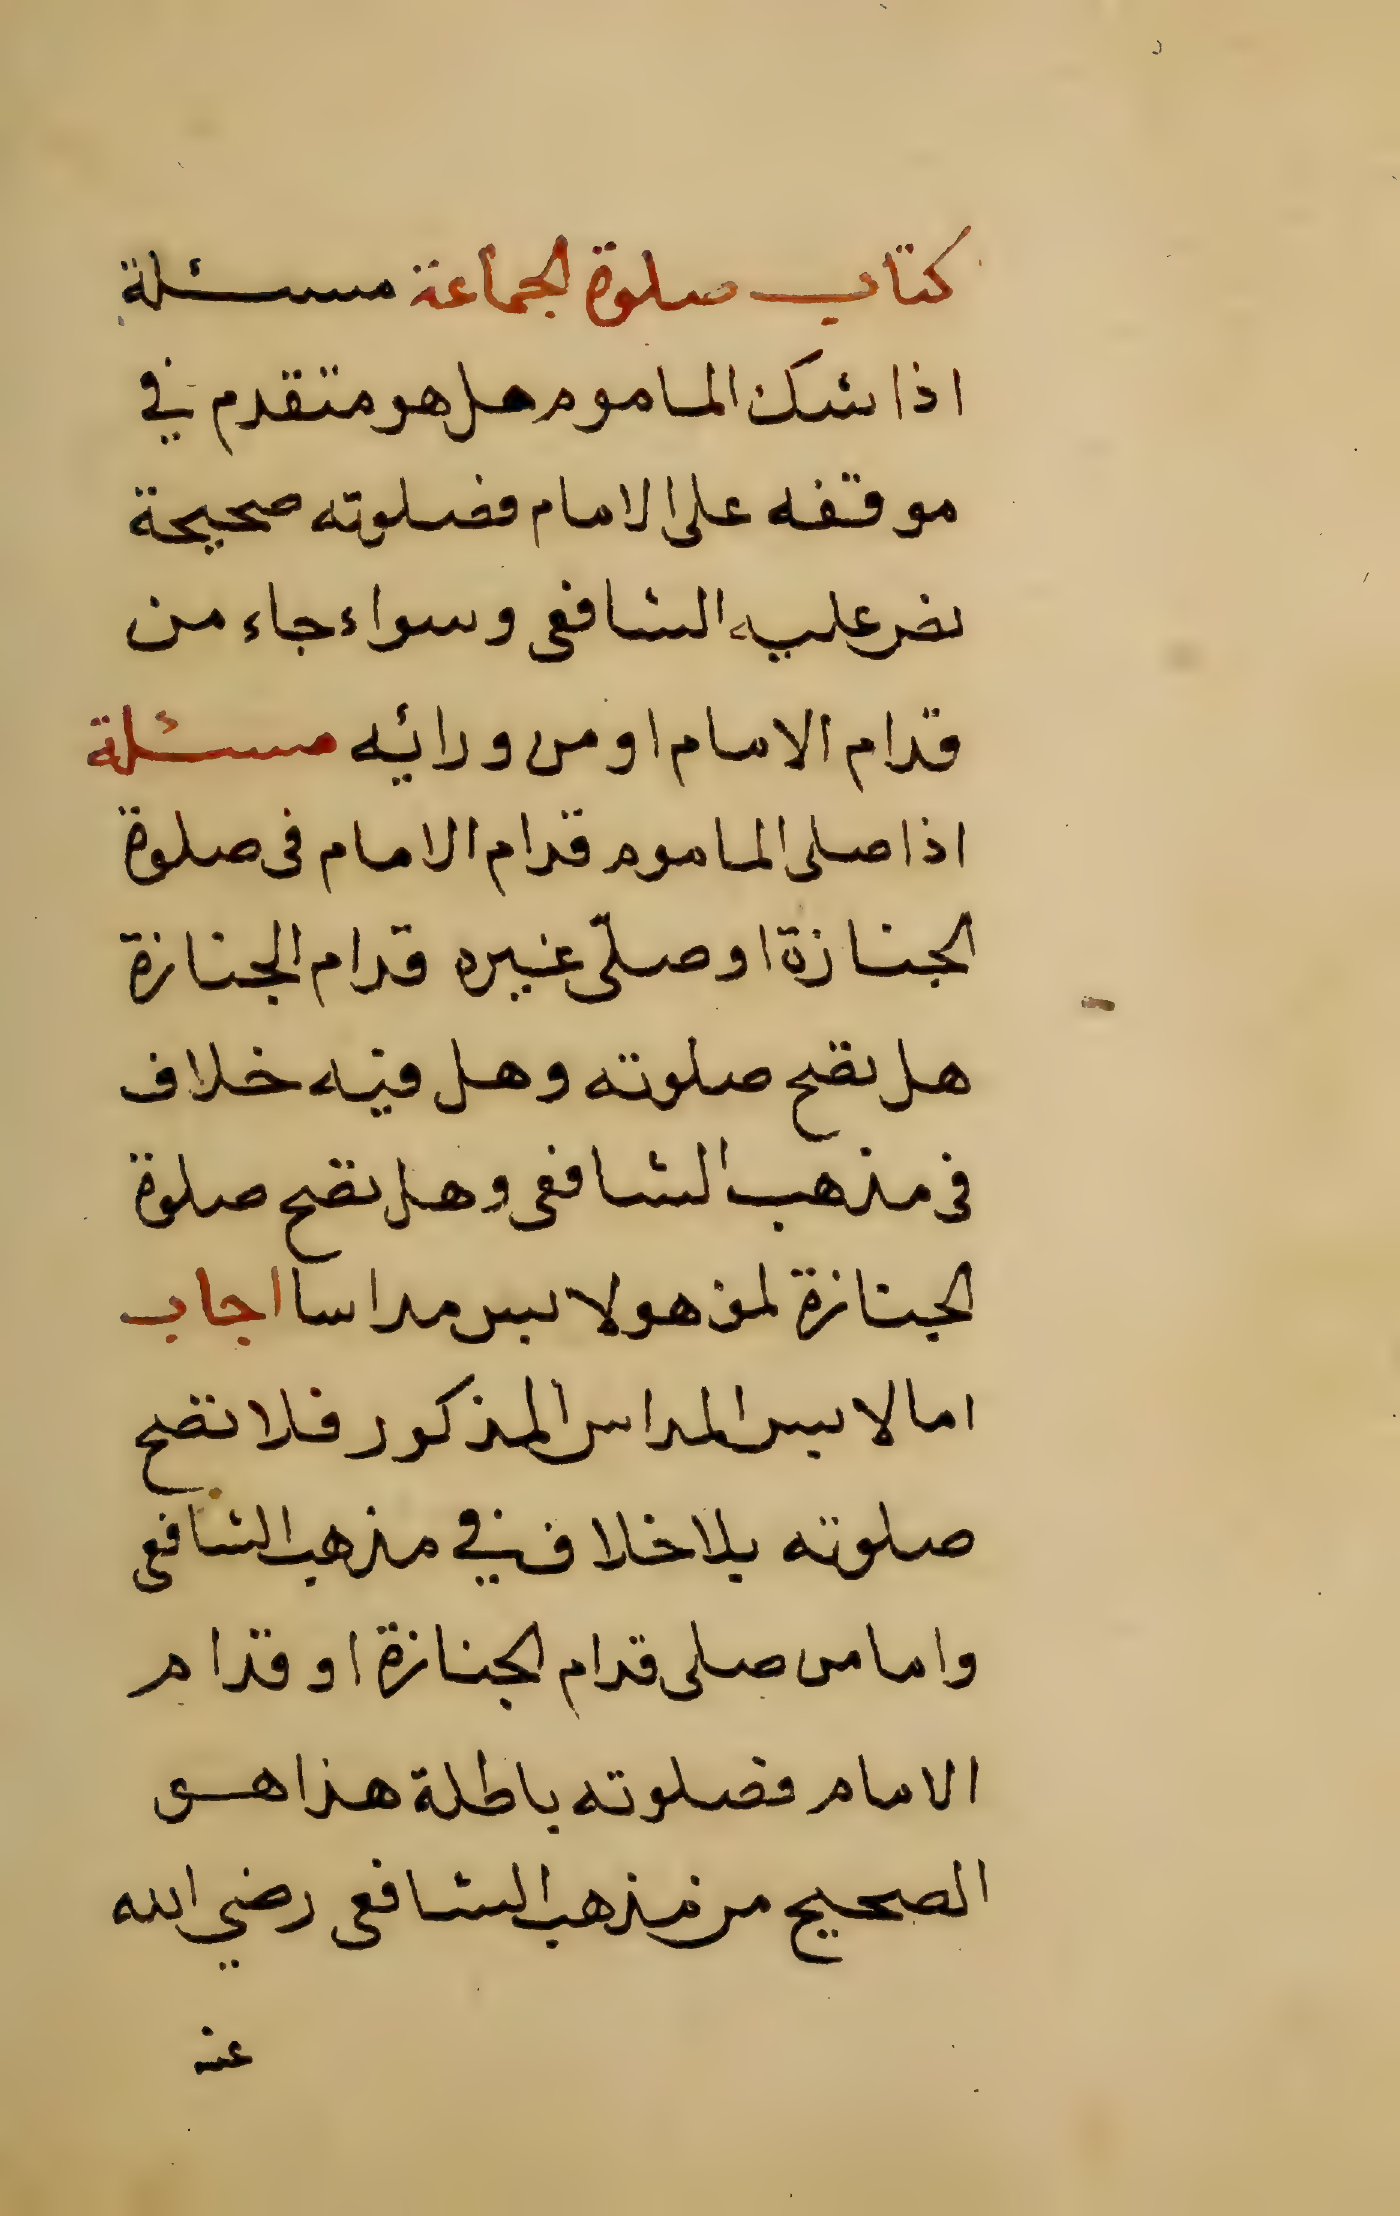 كتاب صلوة الجماعة مسئلة
اذا شك الماموم هل هو متقدم في
موقفه على الامام فصلوته صحيحة
نص عليه الشافعى وسواء جاء من
قدام الامام او من ورائه مسئلة
اذا صلى الماموم قدام الامام فى صلوة
الجنازة او صلّى غيره قدام الجنازة
هل تصح صلوته وهل فيه خلاف
فى مذهب الشافعى وهل تصح صلوة
الجنازة لمن هو لابس مداسا اجاب
اما لابس المداس المذكور فلا تصح
صلوته بلا خلاف في مذهب الشافعى
واما من صلى قدام الجنازة او قدام
الامام فصلوته باطلة هذا هو
الصحيح من مذهب الشافعى رضي الله
عنه